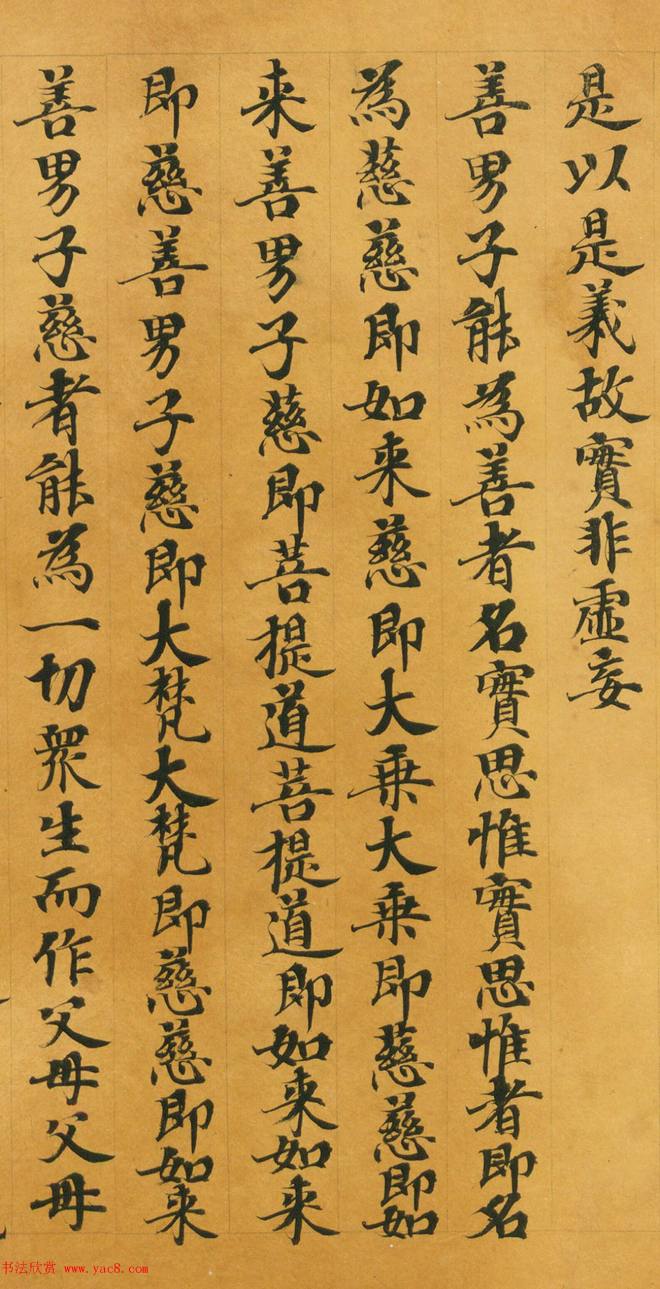 是以是義故實非虛妄
善男子能為善者名實思惟實思惟者即名
為慈慈即如来慈即大乗大乗即慈慈即如
来善男子慈即菩提道菩提道即如来如来
即慈善男子慈即大梵大梵即慈慈即如来
善男子慈者能為一切衆生而作父母父母
书法欣赏 www.yac8.com